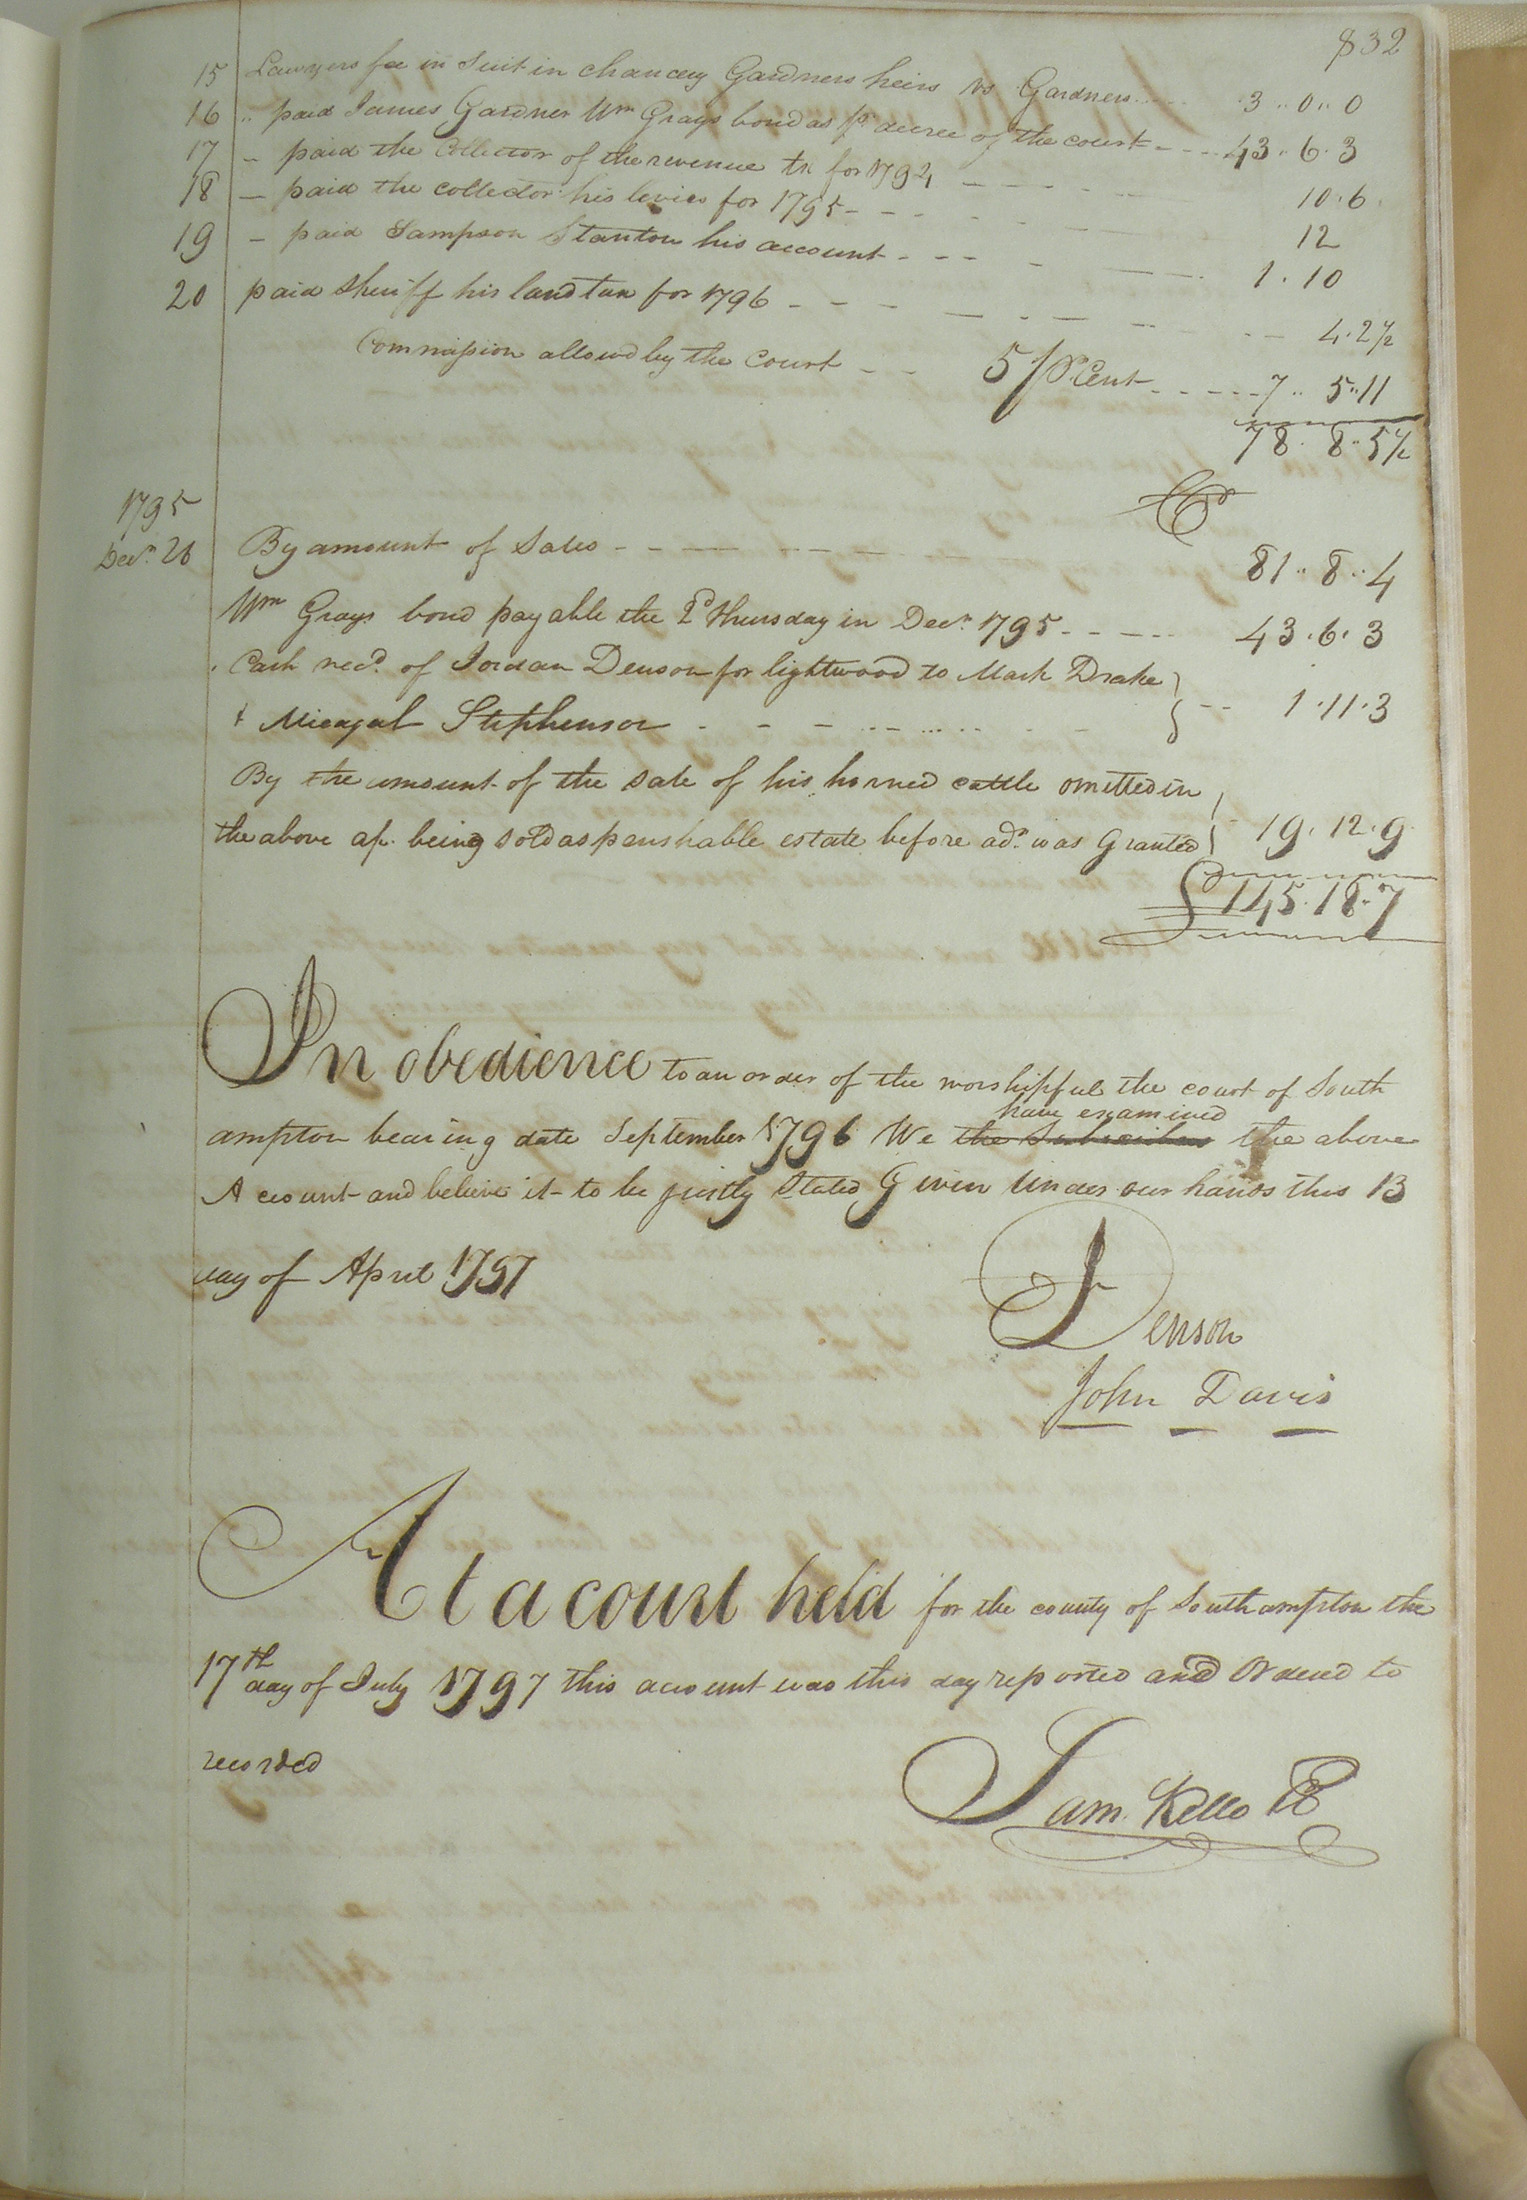 832
15 Lawyers fee in Suit in chancery Gardners heirs vs Gardners 3 .. 0 .. 0
16 .. paid James Gardner Wm Grays bond as pr decree of the court - - - 43 .. 6 . 3
17 - paid the Collector of the revenue tx for 1794 - - - - 10 . 6
18 - paid the collector his levies for 1795 - - - 12
19 - paid Sampson Stanton his account - - - 1 . 10
20 paid Sheriff his land tax for 1796 - - - 4 . 2 1/2
Commission allowd by the Court - - 5 pr Cent - - - - 7 .. 5 .. 11
78 . 8 . 5 1/2
1795
Cr
Decr. 26 By amount of Sales - - - - 81 .. 8 .. 4
Wm Grays bond payable the 2d Thursday in Decr. 1795 - - - - 43 . 6 . 3
Cash recd. of Jordan Denson for lightwood to Mark Drake
& Micajah Stephenson - - - 1 . 11 . 3
By the amount of the sale of his horned cattle omitted in
the above ap. being sold as perishable estate before adn. was Granted 19 . 12 . 9
£ 145 . 18 . 7
In obedience to an order of the worshipful the court of South
have examined
ampton bearing date September 1796 We the Subscribers the above
Account and believe it to be justly Stated Given Under our hands this 13
day of April 1797
J Denson
John Davis
At a court held for the county of Southampton the
17th day of July 1797 this account was this day reported and Ordered to
recorded
Sam. Kello CC